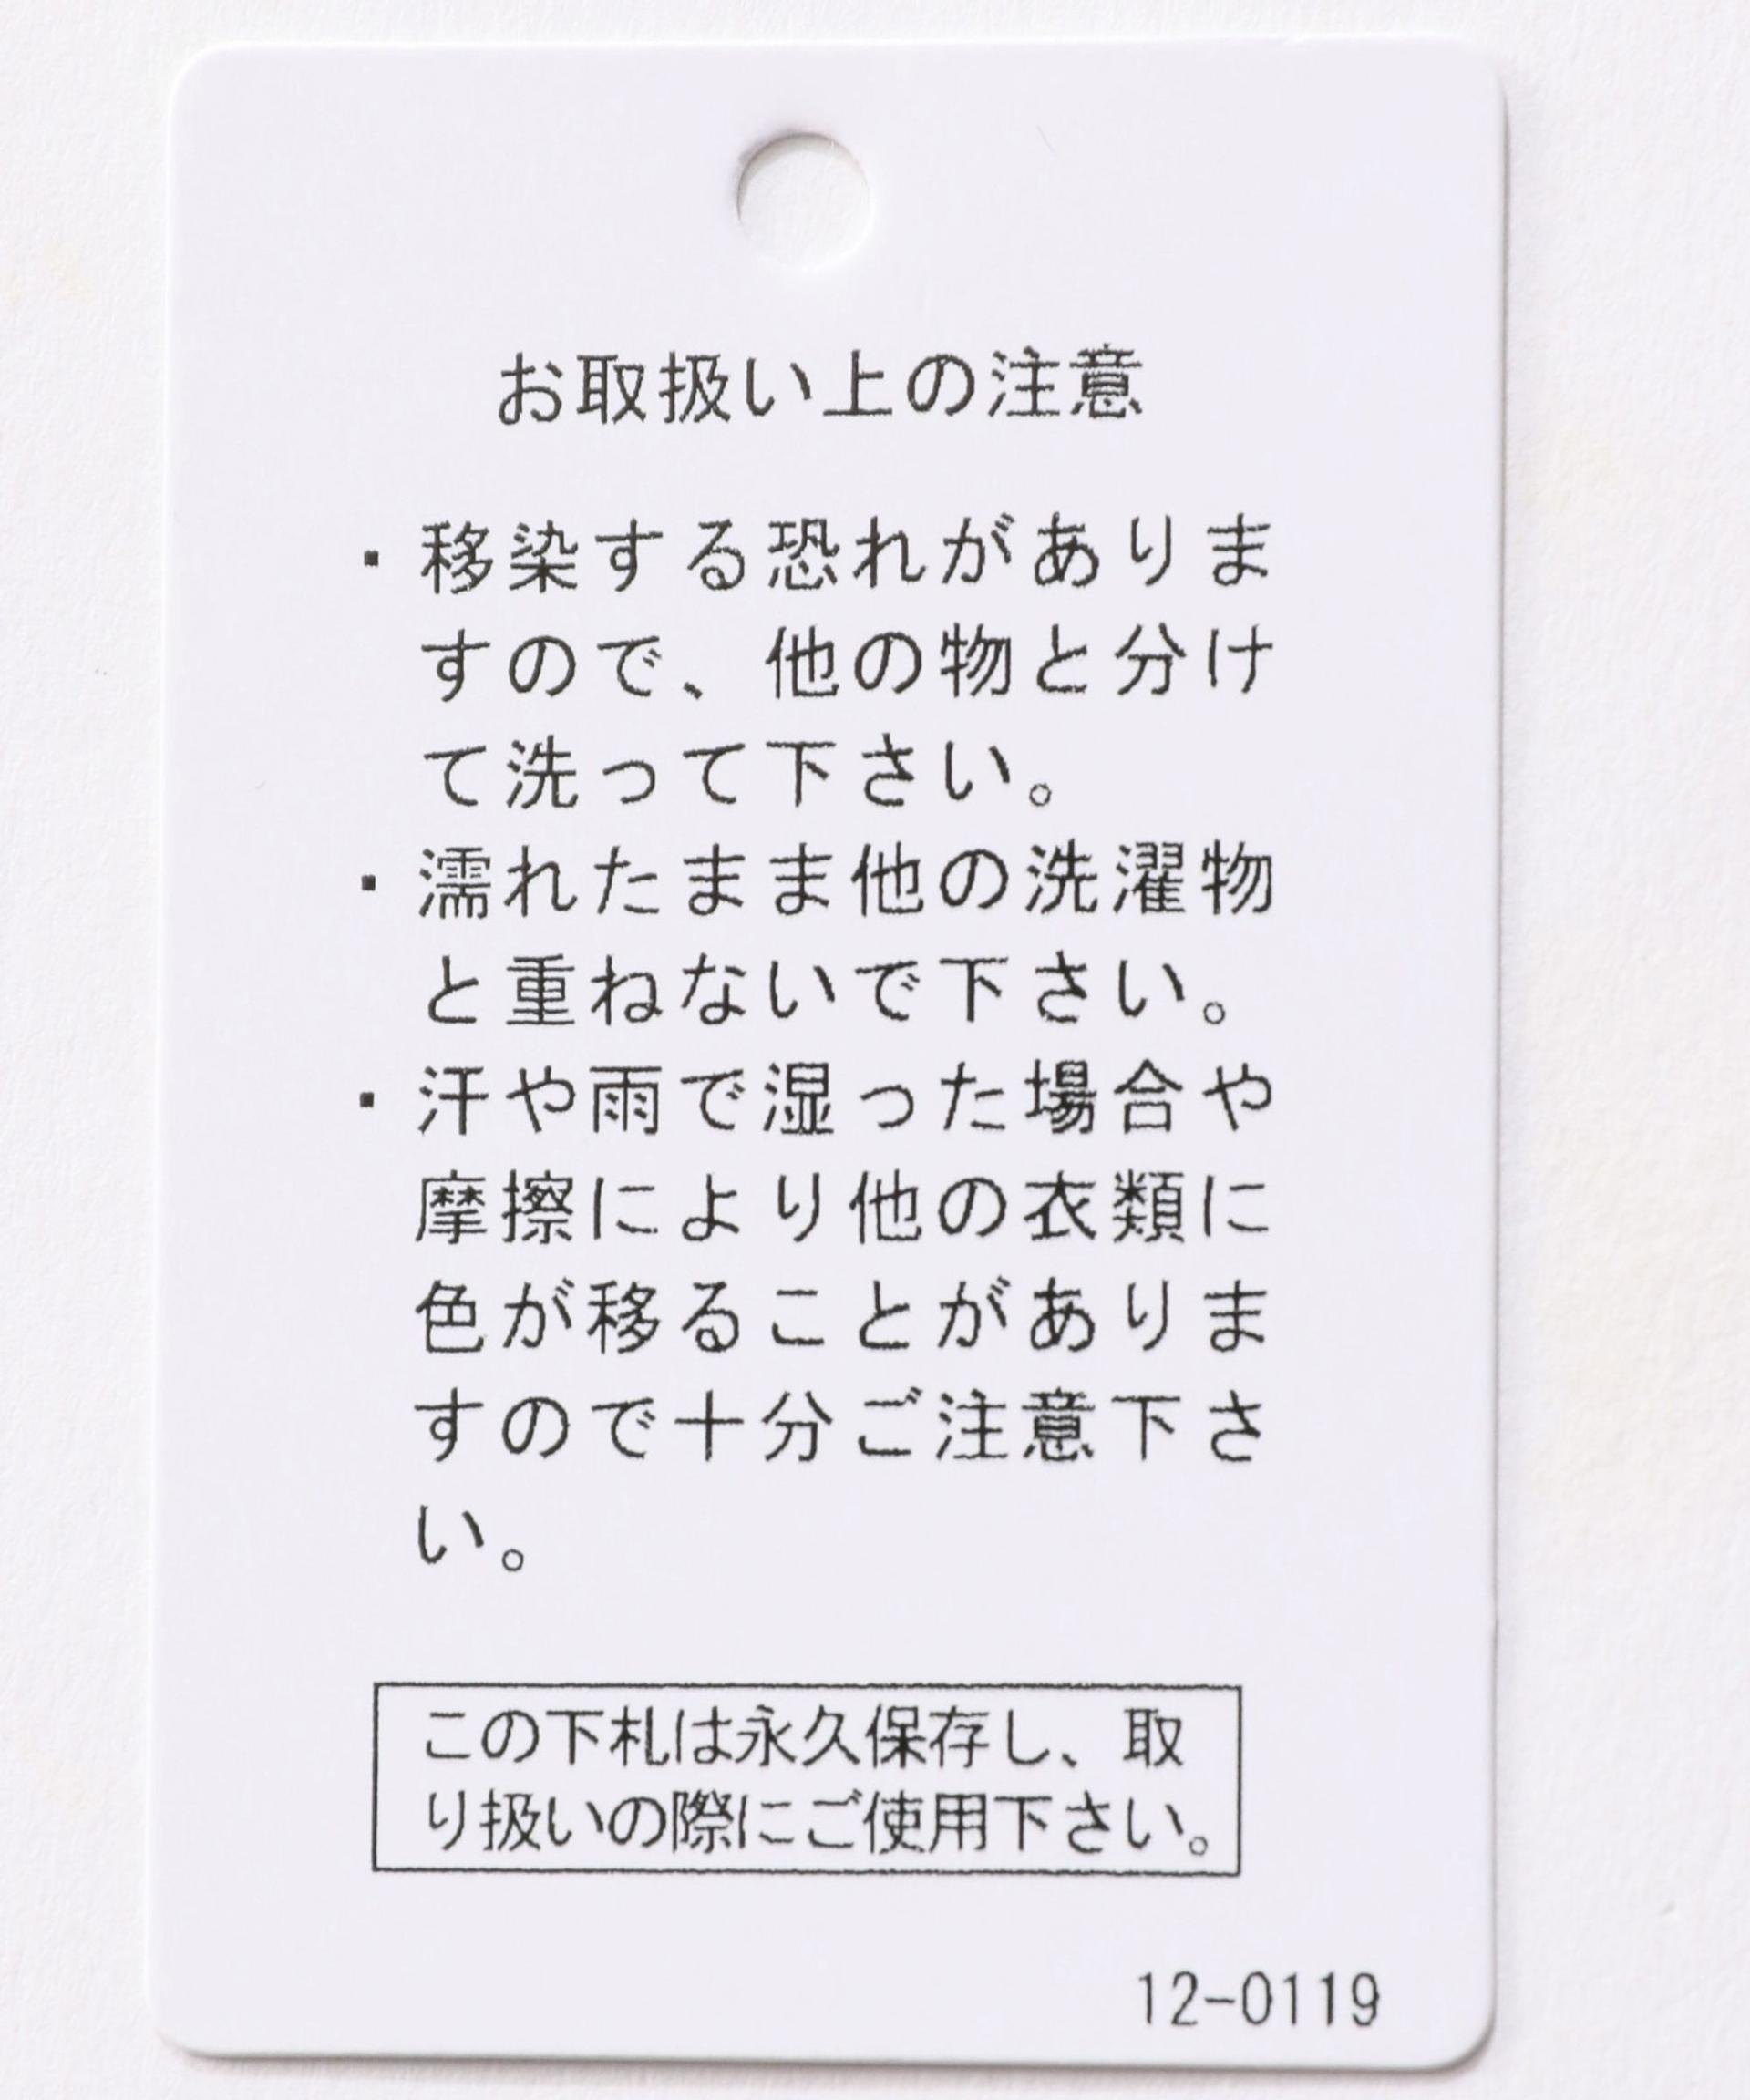 お取扱い上の注意
・移染する恐れがありま
すので、他の物と分け
て洗って下さい。
・濡れたまま他の洗濯物
と重ねないで下さい。
・汗や雨で湿った場合や
摩擦により他の衣類に
色が移ることがありま
すので十分ご注意下さ
い。
この下札は永久保存し、取
り扱いの際にご使用下さい。
12-0119